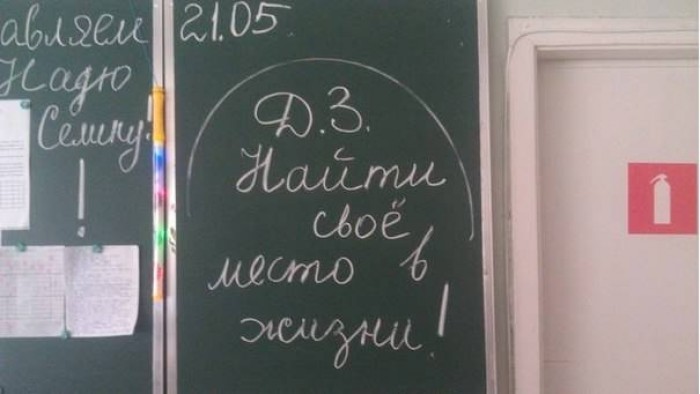 авляем
Надю
Семину!
!
21.05.
Д.З.
Найти
своё
место в
жизни!